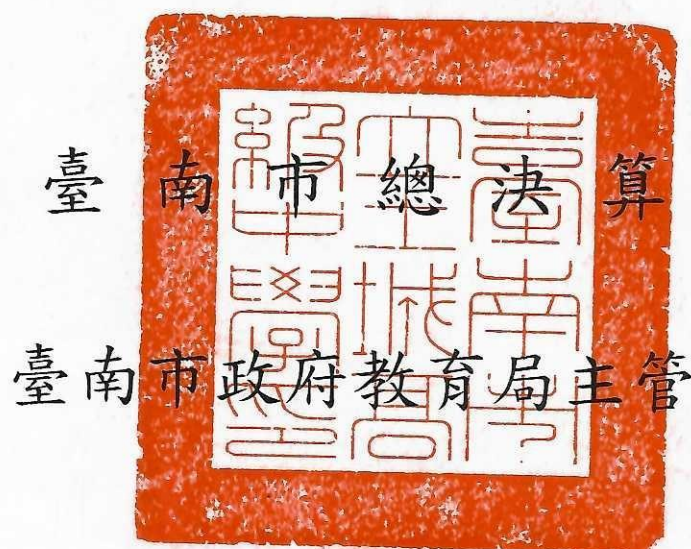 臺南市總決算
臺南市政府教育局主管
臺南市
立土城高
級中學印